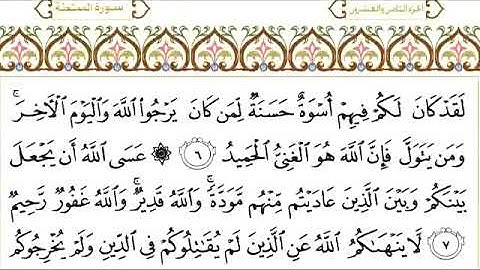 سورة الممتحنة الجزء الثامن والعشرون
لَقَدْ كَانَ لَكُمْ فِيهِمْ أُسْوَةٌ حَسَنَةٌ لِّمَن كَانَ يَرْجُوا۟ ٱللَّهَ وَٱلْيَوْمَ ٱلْءَاخِرَ ۚ
وَمَن يَتَوَلَّ فَإِنَّ ٱللَّهَ هُوَ ٱلْغَنِىُّ ٱلْحَمِيدُ ٦ ۞ عَسَى ٱللَّهُ أَن يَجْعَلَ
بَيْنَكُمْ وَبَيْنَ ٱلَّذِينَ عَادَيْتُم مِّنْهُم مَّوَدَّةً ۚ وَٱللَّهُ قَدِيرٌ ۚ وَٱللَّهُ غَفُورٌ رَّحِيمٌ
٧ لَّا يَنْهَىٰكُمُ ٱللَّهُ عَنِ ٱلَّذِينَ لَمْ يُقَٰتِلُوكُمْ فِى ٱلدِّينِ وَلَمْ يُخْرِجُوكُم